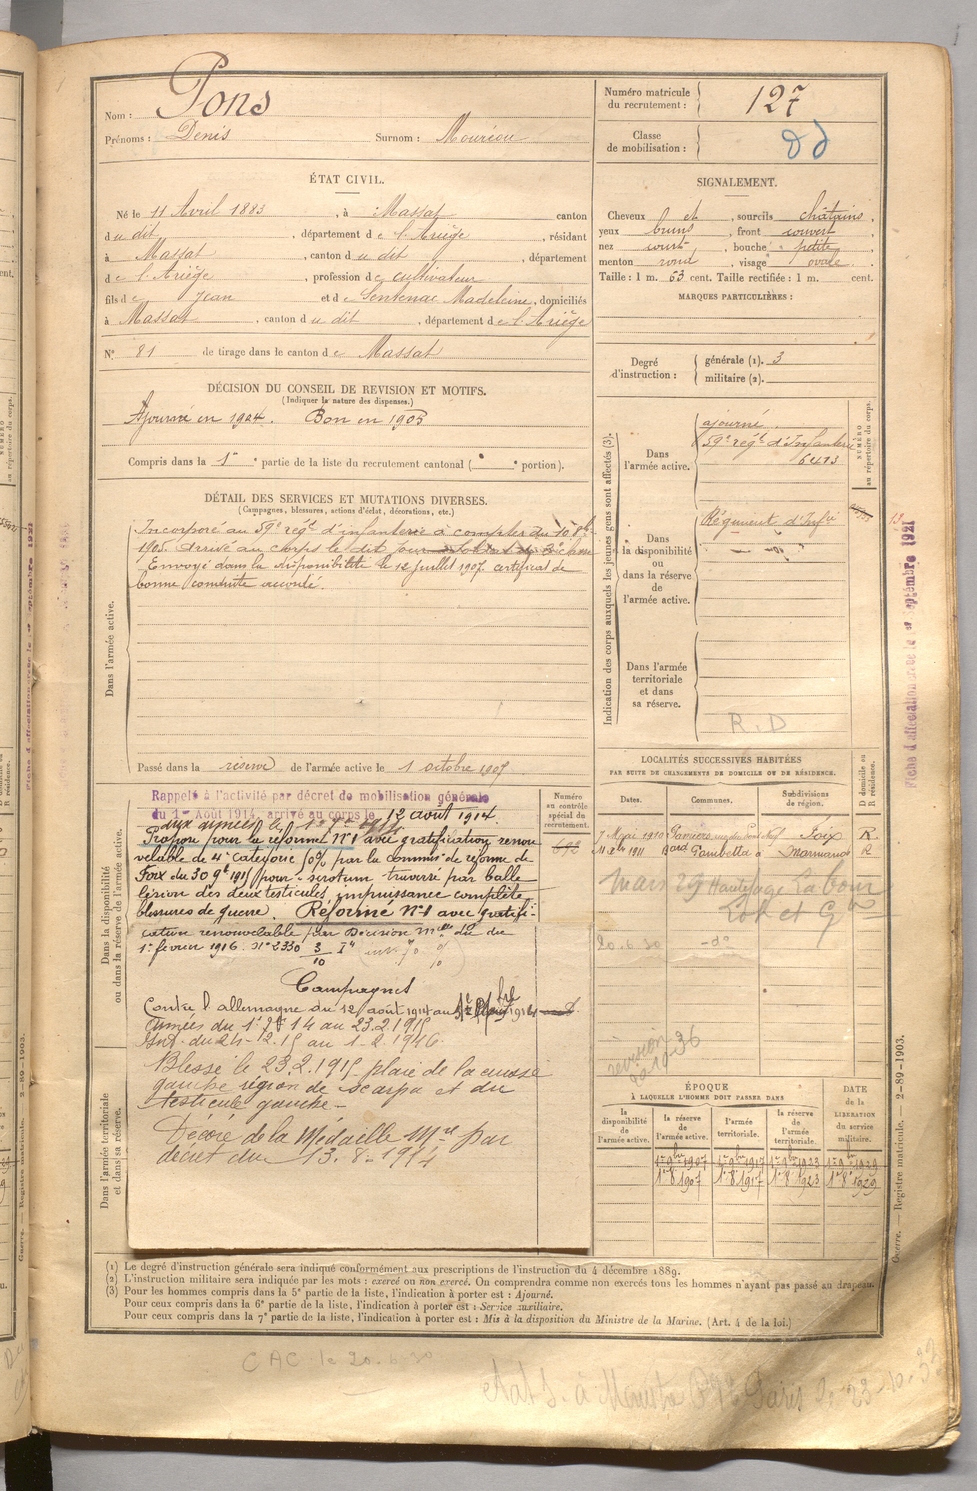 Nom : Pons
Prénoms : Denis Surnom : Mouréou
ÉTAT CIVIL.
Né le 11 Avril 1883, à Massat canton
du dit, département de l'Ariège, résidant
à Massat, canton du dit, département
de l'Ariège, profession de cultivateur
fils de Jean et de Sentenac Madeleine, domiciliés
à Massat, canton du dit, département de l'Ariège
N° 81 de tirage dans le canton de Massat
DÉCISION DU CONSEIL DE REVISION ET MOTIFS.
(Indiquer la nature des dispenses.)
Ajourné en 1904. Bon en 1905
Compris dans la 1re partie de la liste du recrutement cantonal ( portion).
Numéro matricule du recrutement : 127
Classe de mobilisation :
SIGNALEMENT.
Cheveux et, sourcils châtains,
yeux bruns, front couvert,
nez court, bouche petite,
menton rond, visage ovale.
Taille : 1 m. 63 cent. Taille rectifiée : 1 m. cent.
MARQUES PARTICULIÈRES :
Degré d'instruction : générale (1). 3
militaire (2).
DÉTAIL DES SERVICES ET MUTATIONS DIVERSES.
(Campagnes, blessures, actions d'éclat, décorations, etc.)
Dans l'armée active.
Incorporé au 59e régt d'infanterie à compter du 10 8bre
1905. Arrivé au corps le dit jour soldat de 2e classe
Envoyé dans la disponibilité le 12 juillet 1907 certificat de
bonne conduite accordé.
Passé dans la réserve de l'armée active le 1 octobre 1907
Indication des corps auxquels les jeunes gens sont affectés (3).
NUMÉRO au répertoire du corps.
Dans l'armée active.
ajourné
59e régt d'Infanterie
6413
Dans la disponibilité ou dans la réserve de l'armée active.
Régiment d'Infie
Dans l'armée territoriale et dans sa réserve.
R.D
Fiche d'affectation
Septembre 1921
Dans la disponibilité ou dans la réserve de l'armée active.
Rappelé à l'activité par décret de mobilisation générale
du 1er Août 1914, arrivé au corps le 12 août 1914.
aux armées le
Proposé pour la réforme N°1 avec gratification renou
velable de 4e catégorie 50% par la commission de réforme de
Foix du 30 9bre 1915 pour : scrotum traversé par balle
lésion des deux testicules, impuissance complète
blessures de guerre. Réforme N°1 avec gratifi-
cation renouvelable par Décision Mlle du
1er février 1916. N° 2330
Campagnes
Contre l'allemagne du 12 août 1914 au
Armées du 1 14 au 23.2.1915
Int. du 24-12.15 au 1-2.1946.
Blessé le 23.2.1915 plaie de la cuisse
gauche région de scarpa et du
testicule gauche -
Décoré de la Médaille Mre par
décret du 13.8.1914
Dans l'armée territoriale et dans sa réserve.
Numéro au contrôle spécial du recrutement.
692
LOCALITÉS SUCCESSIVES HABITÉES
PAR SUITE DE CHANGEMENTS DE DOMICILE OU DE RÉSIDENCE.
Dates. Communes. Subdivisions de région. D domicile ou R résidence.
7 Mai 1910 Pamiers Foix R
11 Xbre 1911 Bard Gambetta Marmande R
Mars 29 Hautefage La Tour
Lot et Gne
20.6.30 - do
ÉPOQUE
À LAQUELLE L'HOMME DOIT PASSER DANS
la disponibilité de l'armée active. la réserve de l'armée active. l'armée territoriale. la réserve de l'armée territoriale.
DATE de la LIBÉRATION du service militaire.
1er 9bre 1907 1er 9bre 1917 1er 9bre 1923 1er 9bre 1929
1er 8 1907 1er 8 1917 1er 8 1923 1er 8 1929
(1) Le degré d'instruction générale sera indiqué conformément aux prescriptions de l'instruction du 4 décembre 1889.
(2) L'instruction militaire sera indiquée par les mots : exercé ou non exercé. On comprendra comme non exercés tous les hommes n'ayant pas passé au drapeau.
(3) Pour les hommes compris dans la 5e partie de la liste, l'indication à porter est : Ajourné.
Pour ceux compris dans la 6e partie de la liste, l'indication à porter est : Service auxiliaire.
Pour ceux compris dans la 7e partie de la liste, l'indication à porter est : Mis à la disposition du Ministre de la Marine. (Art. 4 de la loi.)
Guerre. — Registre matricule. — 2-89-1903.
CAC le 20.6.30